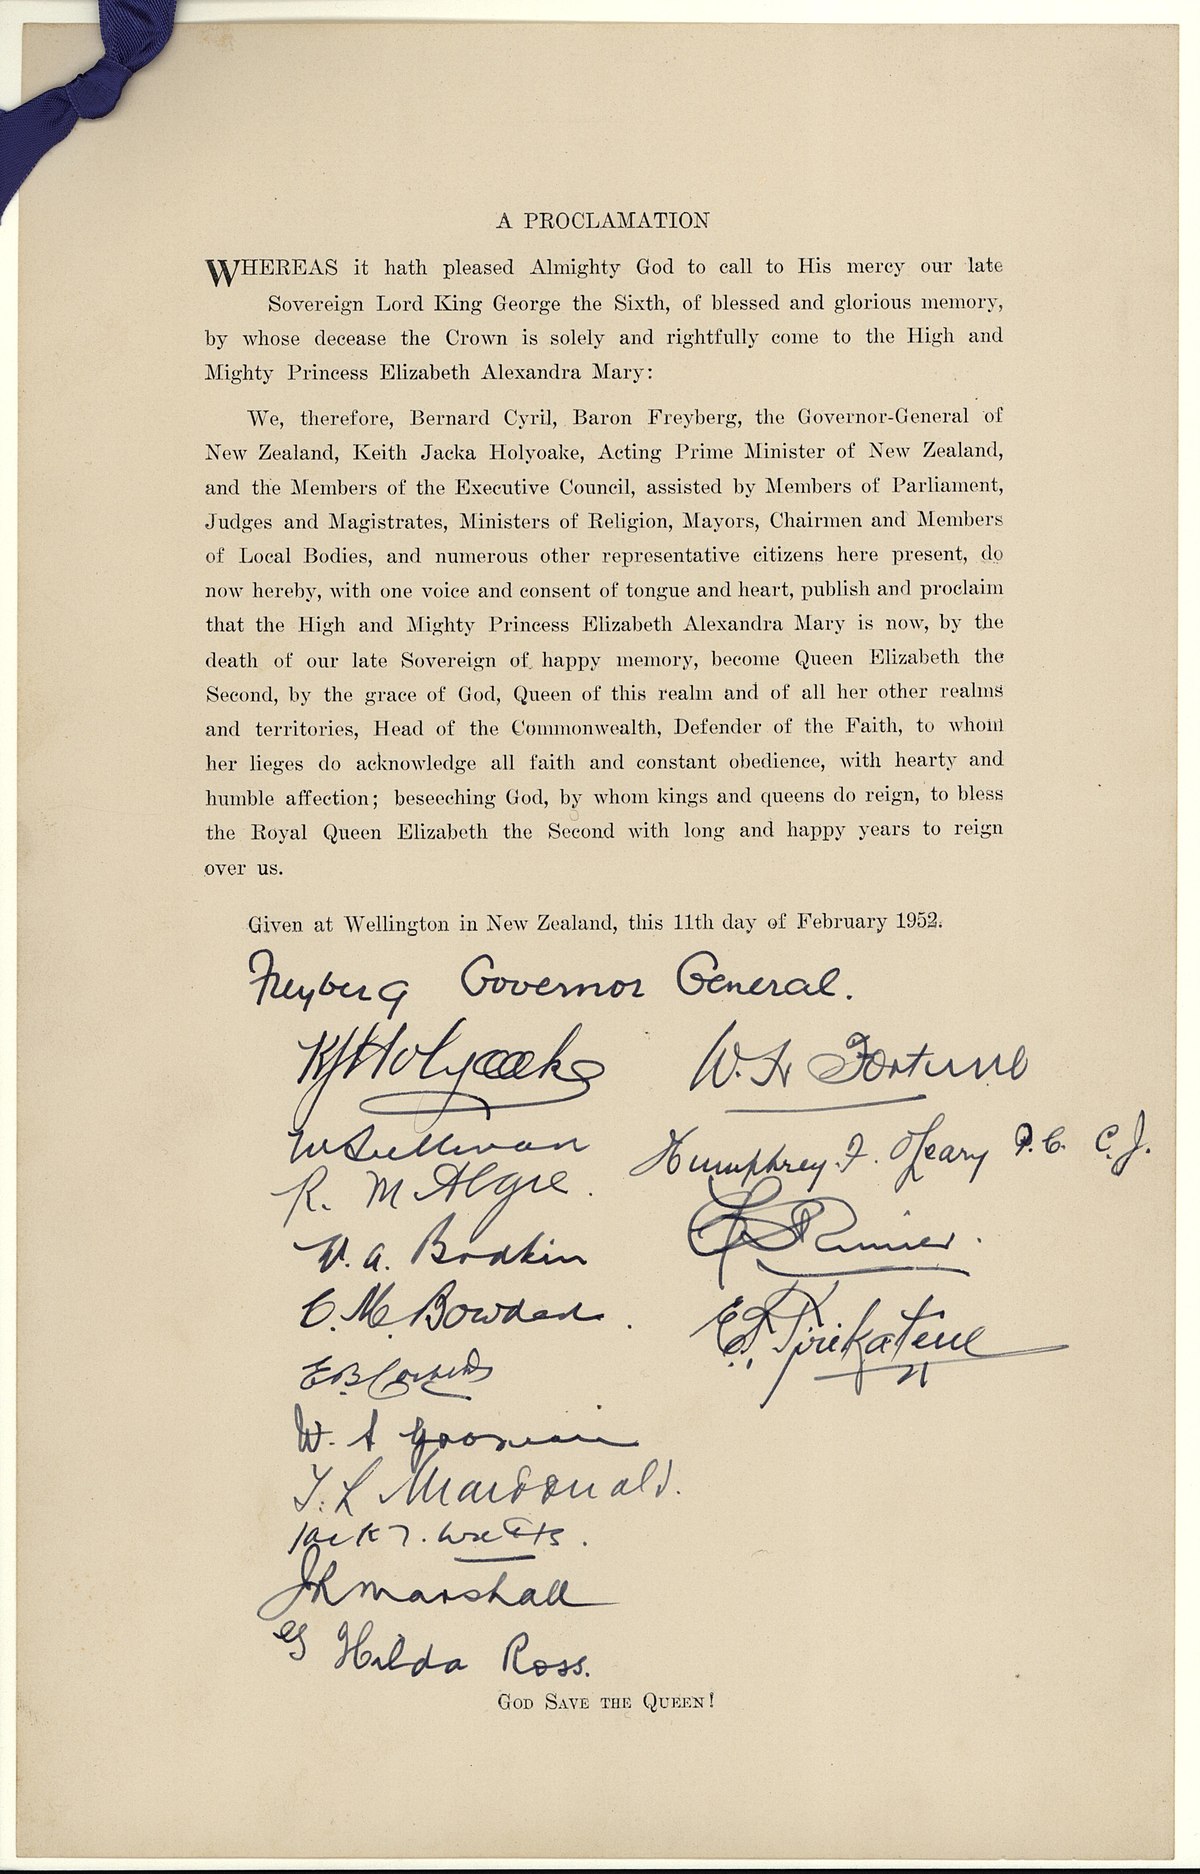 A PROCLAMATION
WHEREAS it hath pleased Almighty God to call to His mercy our late
Sovereign Lord King George the Sixth, of blessed and glorious memory,
by whose decease the Crown is solely and rightfully come to the High and
Mighty Princess Elizabeth Alexandra Mary:
We, therefore, Bernard Cyril, Baron Freyberg, the Governor-General of
New Zealand, Keith Jacka Holyoake, Acting Prime Minister of New Zealand,
and the Members of the Executive Council, assisted by Members of Parliament,
Judges and Magistrates, Ministers of Religion, Mayors, Chairmen and Members
of Local Bodies, and numerous other representative citizens here present, do
now hereby, with one voice and consent of tongue and heart, publish and proclaim
that the High and Mighty Princess Elizabeth Alexandra Mary is now, by the
death of our late Sovereign of happy memory, become Queen Elizabeth the
Second, by the grace of God, Queen of this realm and of all her other realms
and territories, Head of the Commonwealth, Defender of the Faith, to whom
her lieges do acknowledge all faith and constant obedience, with hearty and
humble affection; beseeching God, by whom kings and queens do reign, to bless
the Royal Queen Elizabeth the Second with long and happy years to reign
over us.
Given at Wellington in New Zealand, this 11th day of February 1952.
Freyberg Governor General.
KJ Holyoake
W. H. Fortune
W Sullivan
Humphrey F. O'Leary P.C. C.J.
R. M Algie.
W. A. Bodkin
C. M. Bowden.
E. T. Tirikatene
E B Corbett
W. S Goosman
T. L Macdonald.
Jack T. Watts.
JR Marshall
G Hilda Ross.
GOD SAVE THE QUEEN!